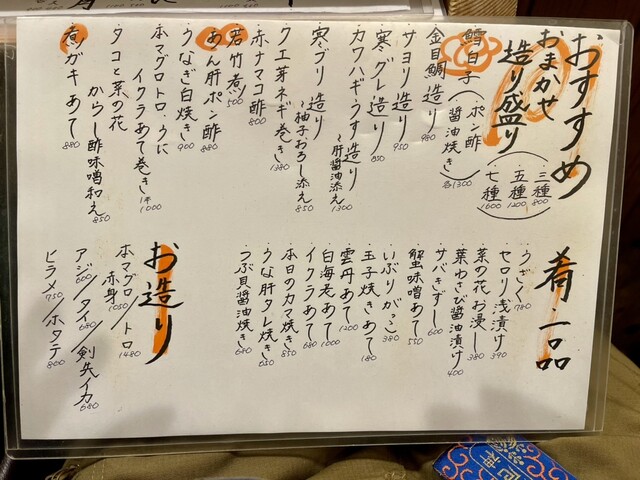 おすすめ
おまかせ
造り盛り
三種 800
五種 1200
七種 1600
鱈白子（ポン酢 醤油焼き）各1300
金目鯛造り 980
・サヨリ造り 950
・寒グレ造り 850
・カワハギうす造り
〜肝醤油添え 1300
・寒ブリ造り
〜柚子おろし添え 850
・クエ芽ネギ巻き 1380
・赤ナマコ酢 800
・若竹煮 500
・あん肝ポン酢 880
・うなぎ白焼き 900
・本マグロトロ、うに
イクラあて巻き 1本 1000
・タコと菜の花
からし酢味噌和え 850
・煮ガキあて 880
肴・一品
・うざく 780
・セロリ浅漬け 390
・菜の花お浸し 380
・葉わさび醤油漬け 400
・サバきずし 600
・蟹味噌あて 550
・いぶりがっこ 380
・玉子焼きあて 180
・雲丹あて 1200
・白海老あて 1000
・イクラあて 680
・本日のカマ焼き 850
・うな肝タレ焼き 650
・つぶ貝醤油焼き 680
お造り
本マグロ／トロ 1480
赤身 1050
アジ 600／タイ 680／剣先イカ 680
ヒラメ 950／ホタテ 800